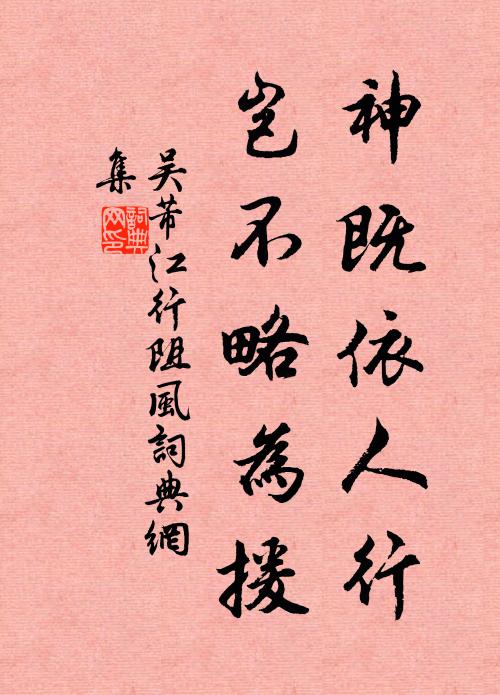 神既依人行
岂不略為援
吴芾江行阻風詞典網
集
詞典
网印